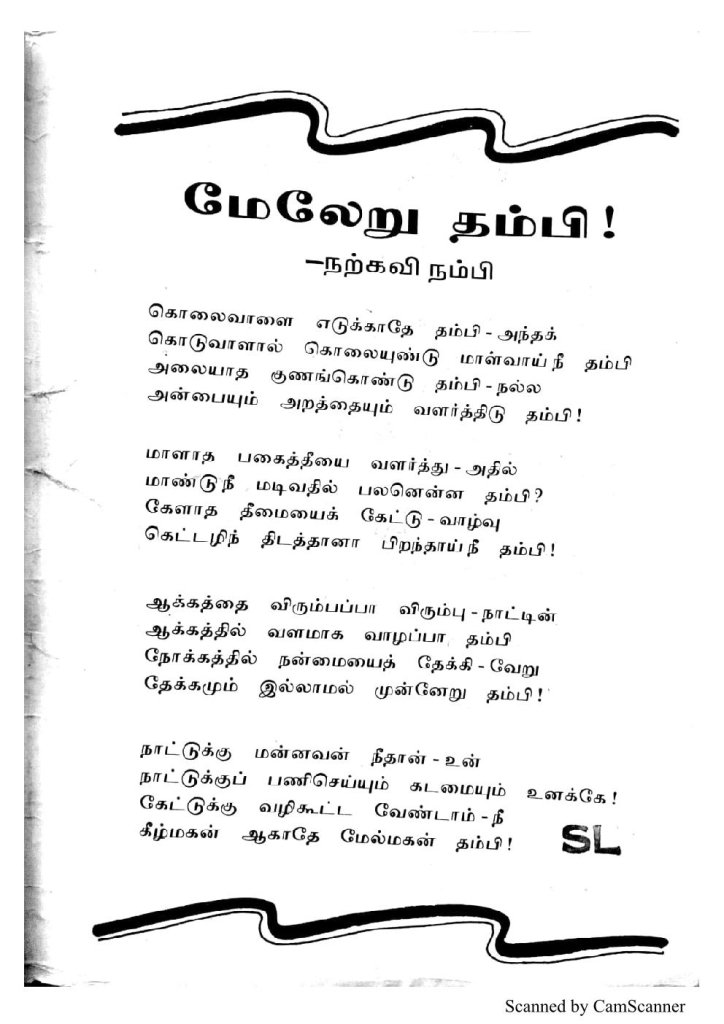 மேலேறு தம்பி!
–நற்கவி நம்பி
கொலைவாளை எடுக்காதே தம்பி - அந்தக்
கொடுவாளால் கொலையுண்டு மாள்வாய் நீ தம்பி
அலையாத குணங்கொண்டு தம்பி - நல்ல
அன்பையும் அறத்தையும் வளர்த்திடு தம்பி!
மாளாத பகைத்தீயை வளர்த்து - அதில்
மாண்டு நீ மடிவதில் பலனென்ன தம்பி?
கேளாத தீமையைக் கேட்டு - வாழ்வு
கெட்டழிந் திடத்தானா பிறந்தாய் நீ தம்பி!
ஆக்கத்தை விரும்பப்பா விரும்பு - நாட்டின்
ஆக்கத்தில் வளமாக வாழப்பா தம்பி
நோக்கத்தில் நன்மையைத் தேக்கி - வேறு
தேக்கமும் இல்லாமல் முன்னேறு தம்பி!
நாட்டுக்கு மன்னவன் நீதான் - உன்
நாட்டுக்குப் பணிசெய்யும் கடமையும் உனக்கே!
கேட்டுக்கு வழிகூட்ட வேண்டாம் - நீ
கீழ்மகன் ஆகாதே மேல்மகன் தம்பி!
SL
Scanned by CamScanner